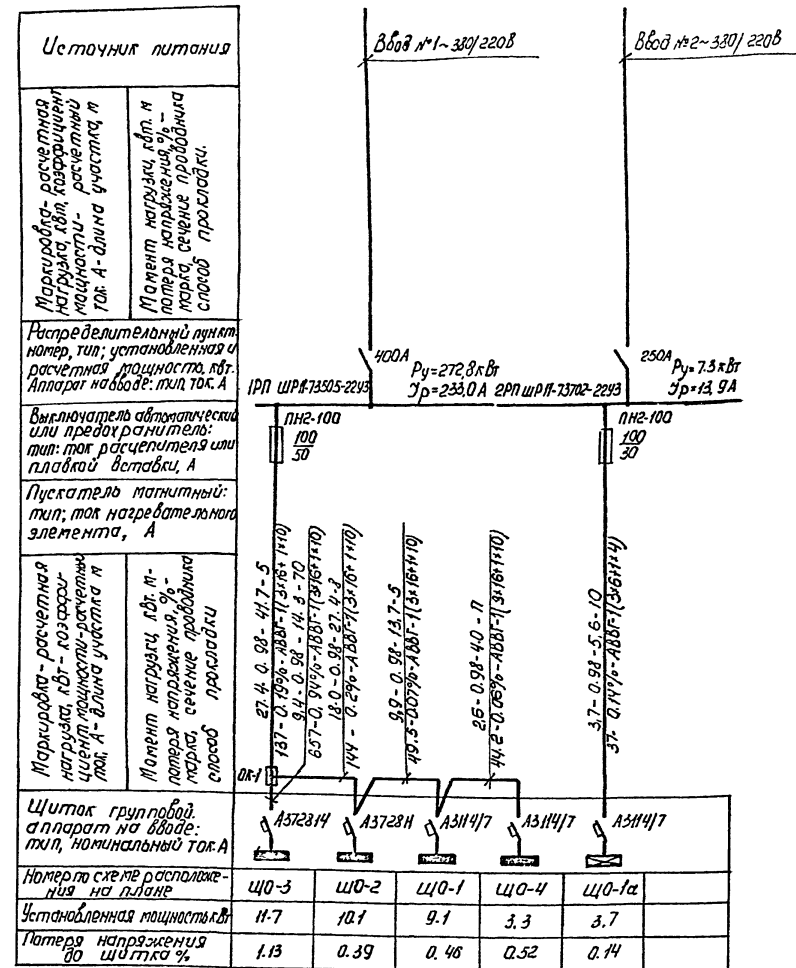 Источник питания
Ввод №1~380/220В
Ввод №2~380/220В
Маркировка-расчетная
нагрузка, квт, коэффициент
мощности- расчетный
ток. А-длина участка, м
Момент нагрузки, квт. м
потеря напряжения, % -
марка, сечение проводника
способ прокладки.
Распределительный пункт
номер, тип; установленная и
расчетная мощность, квт.
Аппарат на вводе: тип, ток. А
400А
Ру=272,8кВт
1РП ШР11-73505-22У3
Ур=233,0А
250А
Ру=7.3кВт
2РП ШР11-73702-22У3
Ур=13,9А
Выключатель автоматический
или предохранитель:
тип: ток расцепителя или
плавкой вставки, А
ПН2-100
100
50
ПН2-100
100
30
Пускатель магнитный:
тип; ток нагревательного
элемента, А
Маркировка-расчетная
нагрузка, кВт- коэффи-
циент мощности-расчетный
ток, А-длина участка м
Момент нагрузки, кВт. м-
потеря напряжения, % -
марка, сечение проводника
способ прокладки
27.4-0.98-41.7-5
137-0.19%-АВВГ-1(3×16+1×10)
9.4-0.98-14.3-70
657-0,94%-АВВГ-1(3×16+1×10)
18.0-0.98-27.4-8
144-0.2%-АВВГ-1(3×16+1×10)
9,9-0.98-13.7-5
49.5-0.07%-АВВГ-1(3×16+1×10)
2.6-0.98-4.0-17
44.2-0.06%-АВВГ-1(3×16+1×10)
3.7-0.98-5.6-10
37-0.14%-АВВГ-1(3×6+1×4)
ОК-1
Щиток групповой.
аппарат на вводе:
тип, номинальный ток. А
А3114/7
А3114/7
А3114/7
Номер по схеме расположе-
ния на плане
ЩО-3
ЩО-2
ЩО-1
ЩО-4
ЩО-1а
Установленная мощность кВт
11.7
10.1
9.1
3.3
3.7
Потеря напряжения
до щитка %
1.13
0.39
0.46
0.52
0.14